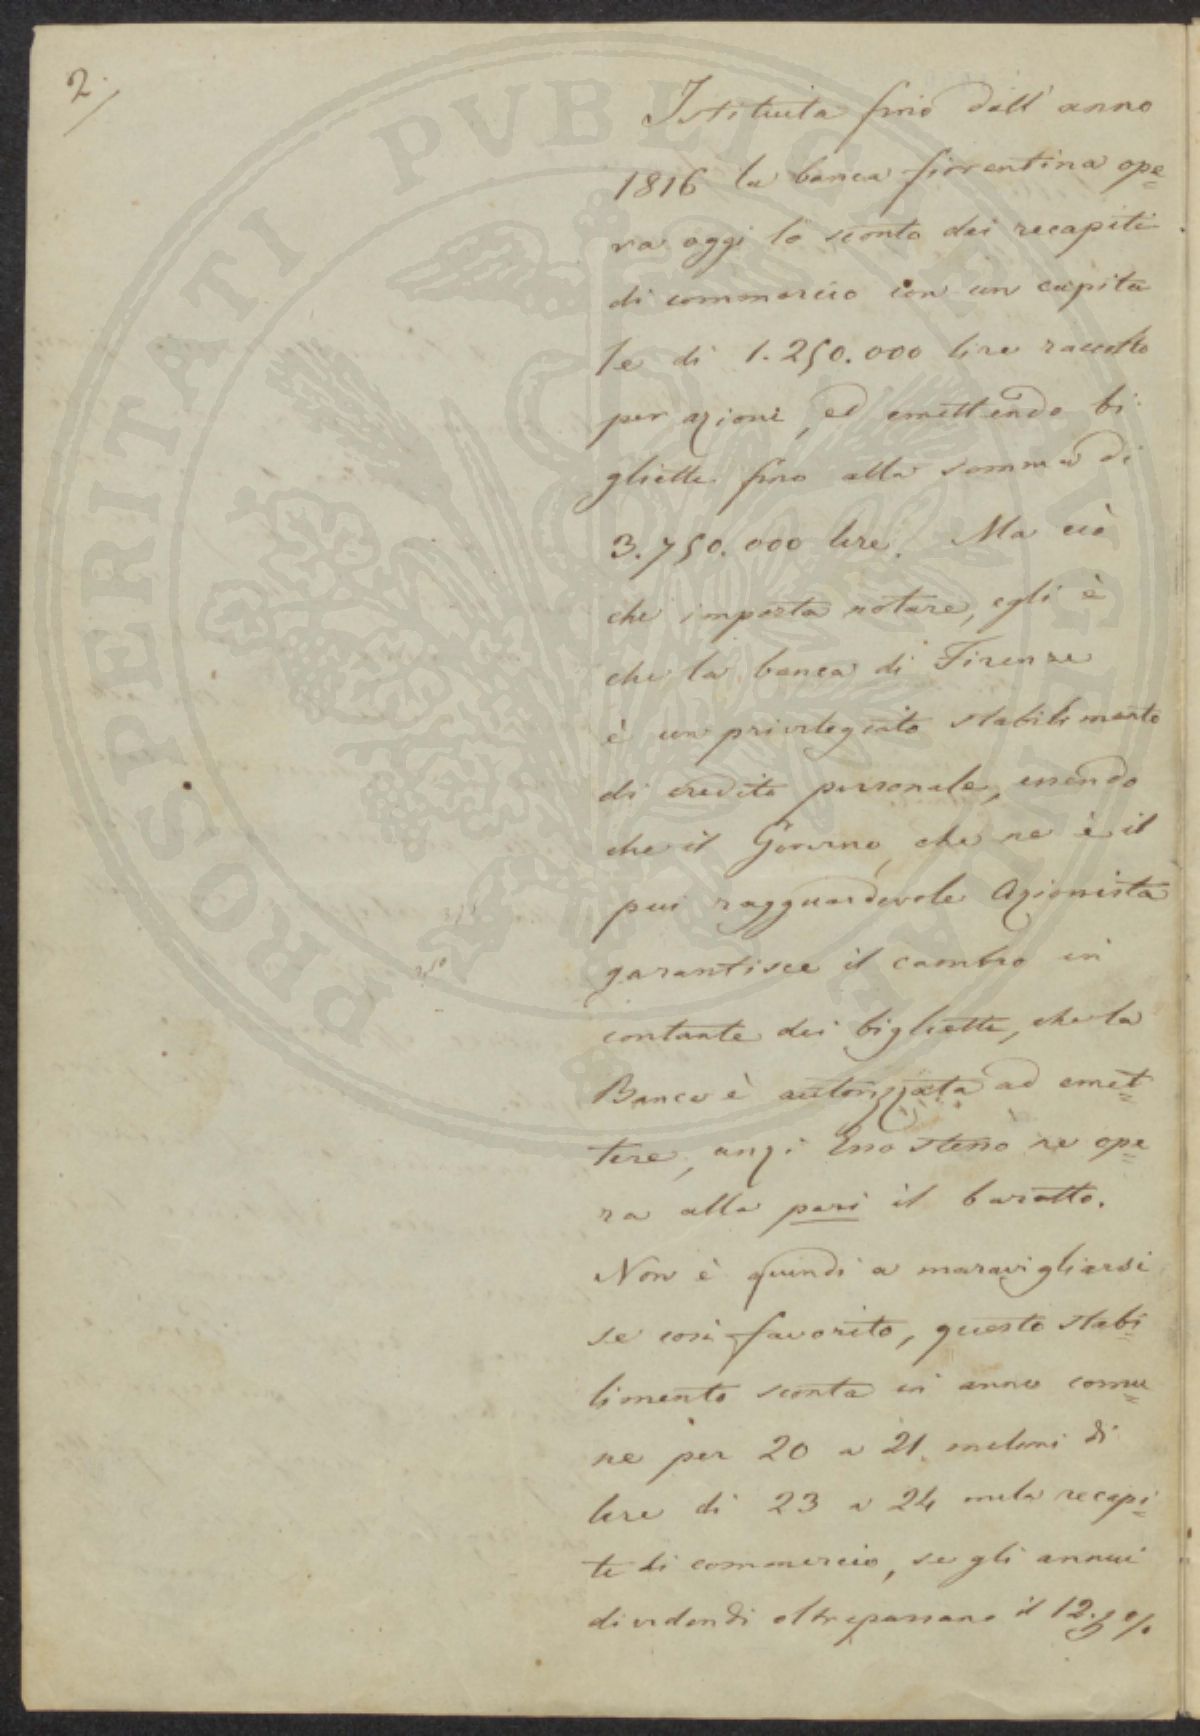 2.
Istituita fino dall' anno
1816 la banca fiorentina ope=
ra oggi lo sconto dei recapiti
di commercio con un capita
le di 1.250.000 lire raccolto
per azioni, ed emettendo bi-
glietti fino alla somma di
3.750.000 lire. Ma ciò
che importa notare, egli è
che la banca di Firenze
è un privilegiato stabilimento
di credito personale, essendo
che il Governo, che ne è il
piu ragguardevole Azionista
garantisce il cambio in
contante dei biglietti, che la
Banca è autorizzata ad emet=
tere, anzi Esso stesso ne ope=
ra alla pari il baratto.
Non è quindi a maravigliarsi
se cosi favorito, questo stabi=
limento sconta in anno comu=
ne per 20 a 21 milioni di
lire di 23 a 24 mila recapi=
ti di commercio, se gli annui
dividendi oltrepassano il 12. %
PROSPERITATI PVBLICAE AVGENDAE